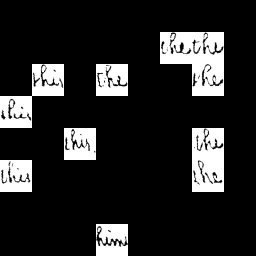 the the
this the the
this
this. the
this the
him